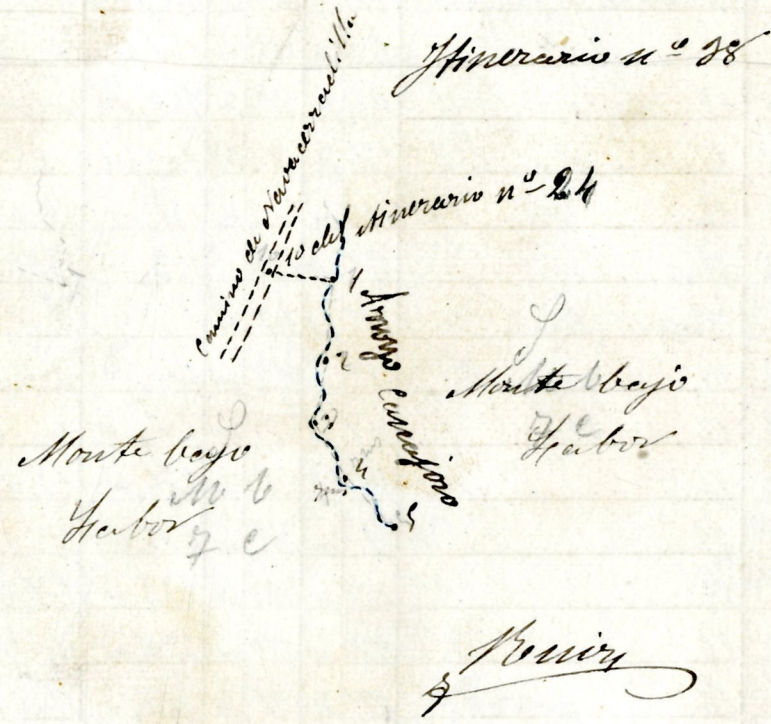 Itinerario nº 38
Camino de Navacerradilla
10 del Itinerario nº 24
1
Arroyo
2
3
4
5
Monte bajo
Labor
Monte bajo
Labor
S
M b
7 c
S
M b
7 c
Ruiz